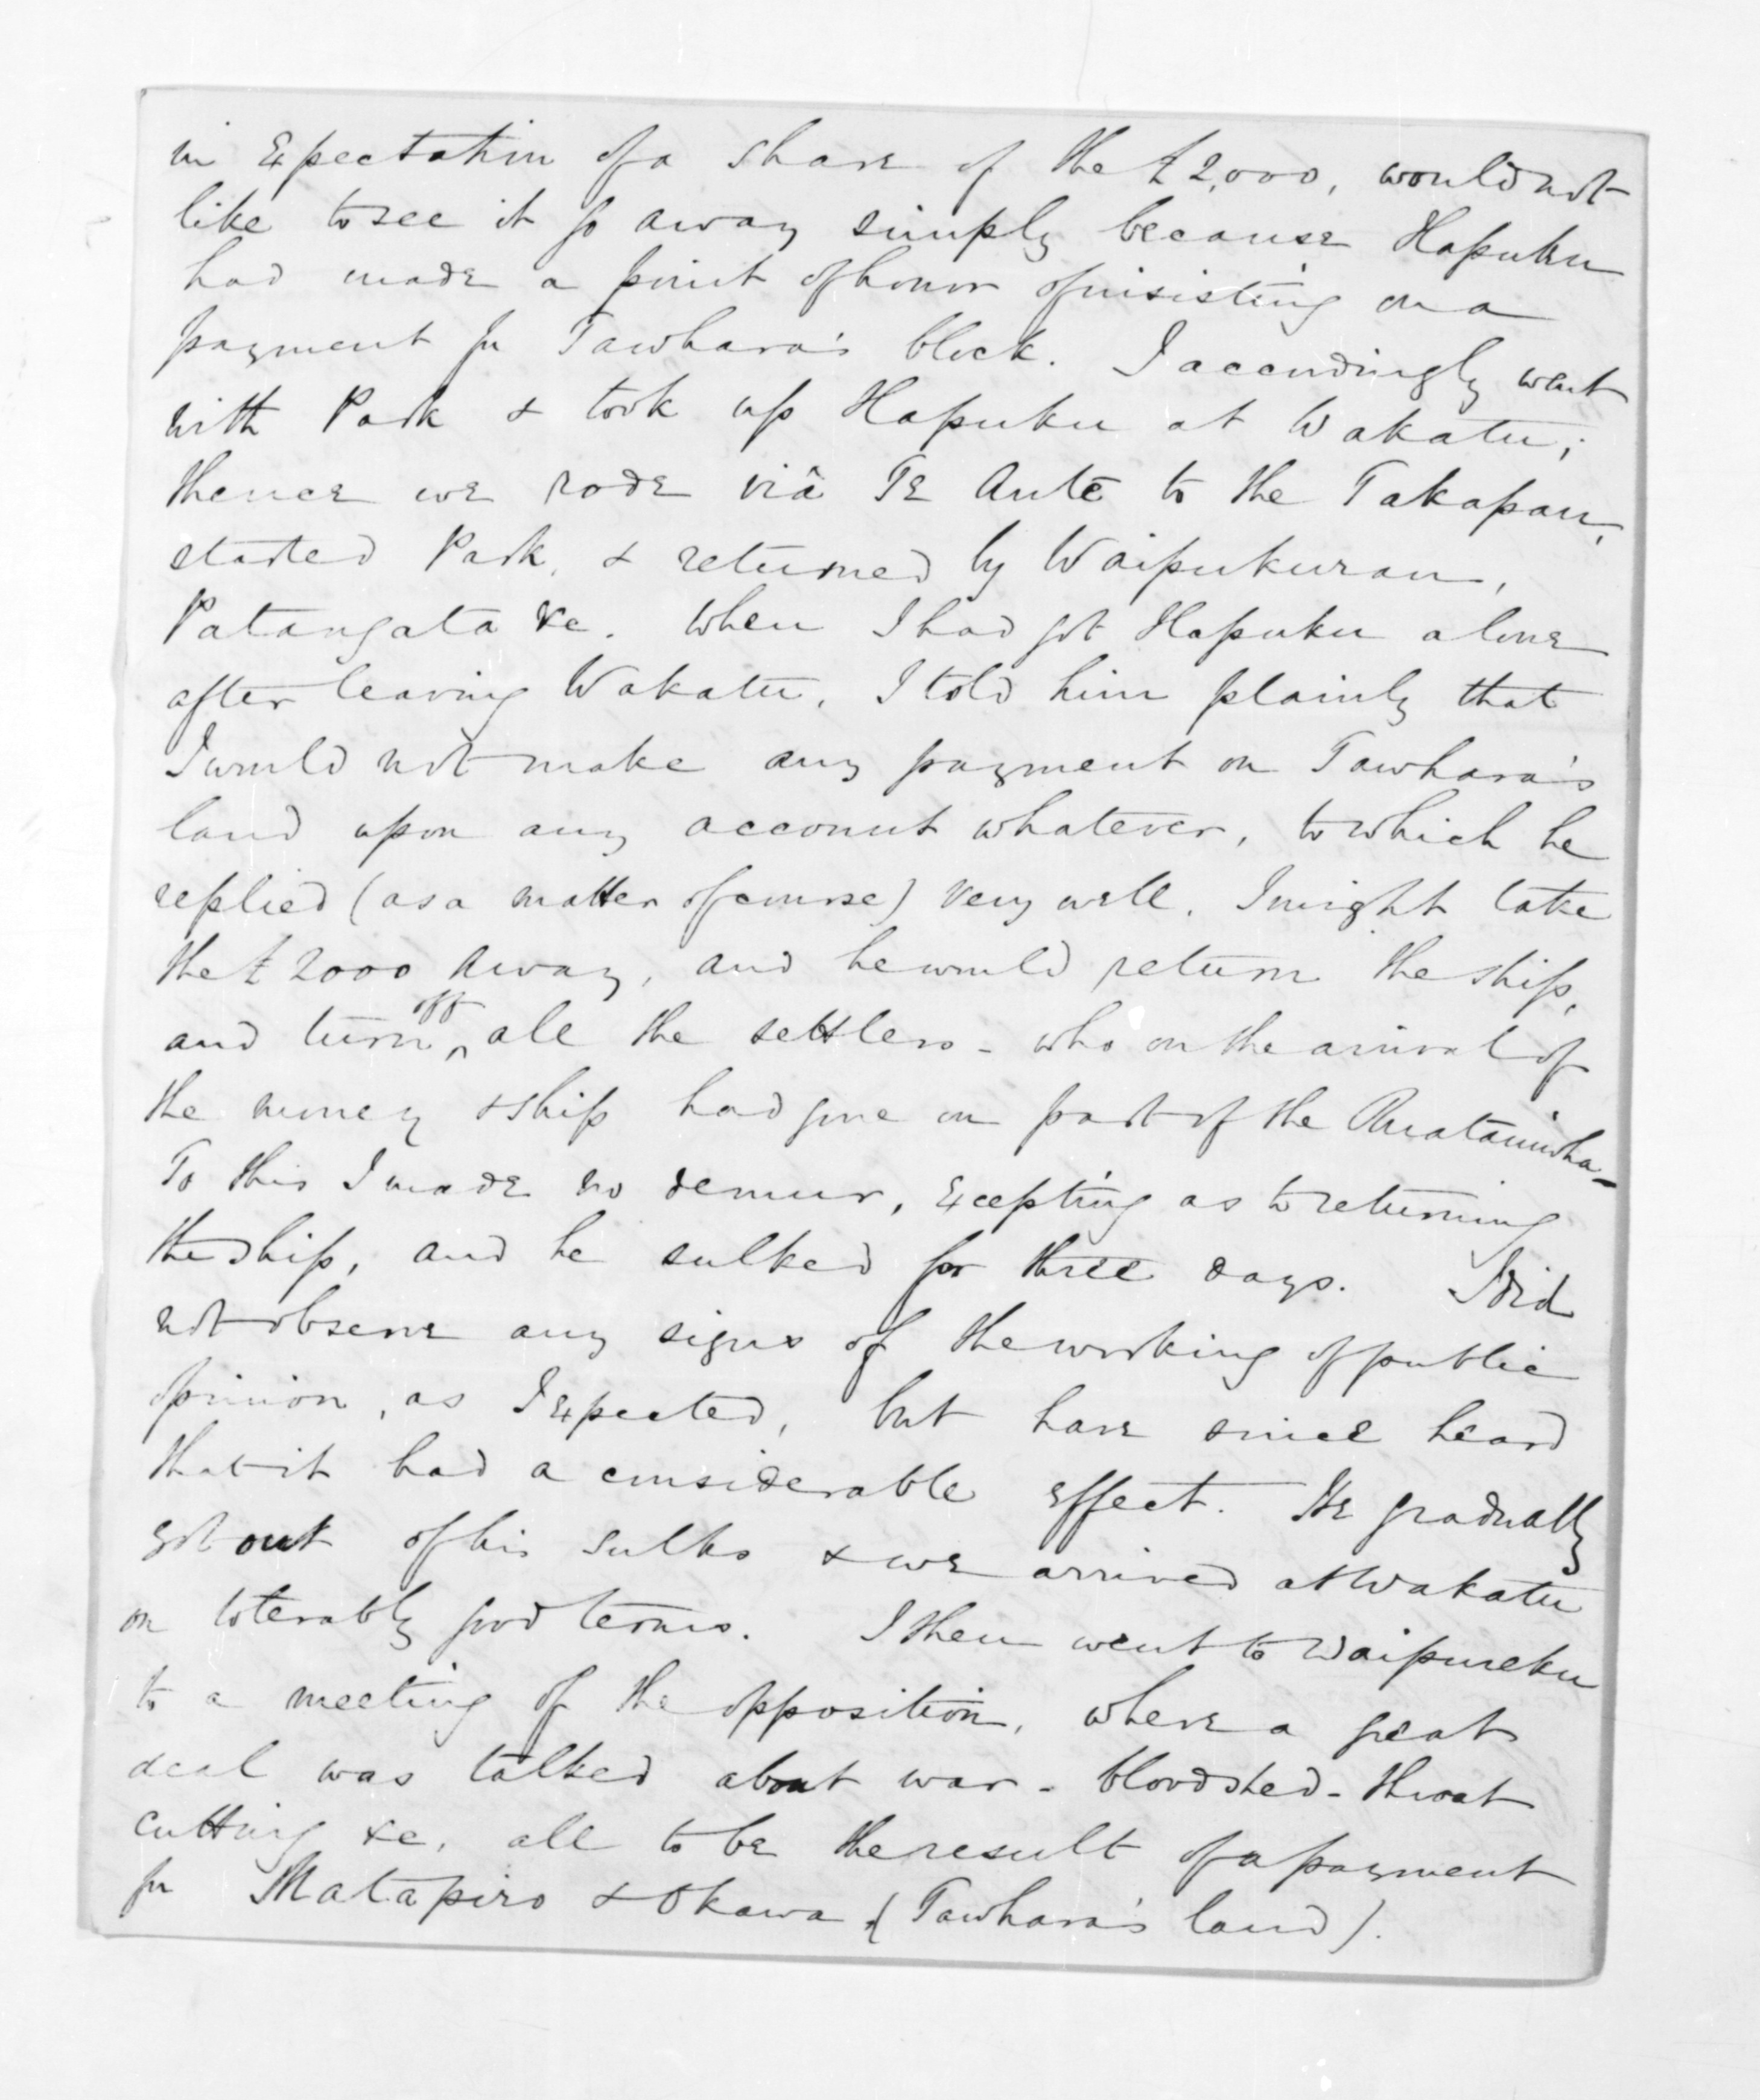 in expectation of a share of the £2,000, would not
like to see it go away simply because Hapuku
had made a point of honor of insisting on a
payment for Tawhara's block. I accordingly went
with Park & took up Hapuku at Wakatu;
thence we rode viâ Te Aute to the Takapau,
started Park, & returned by Waipukurau,
Patangata &c. When I had got Hapuku alone
after leaving Wakatu, I told him plainly that
I would not make any payment on Tawhara's
land upon any account whatever, to which he
replied (as a matter of course) very well. I might take
the £2000 away, and he would return the ship,
and turn off all the settlers - who on the arrival of
the money & ship had gone on part of the Ruataniwha -
To this I made no demur, excepting as to returning
the ship, and he sulked for three days. I did
not observe any signs of the working of public
opinion, as I expected, but have since heard
that it had a considerable effect. He gradually
got out of his sulks & we arrived at Wakatu
on tolerably good terms. I then went to Waipureku
to a meeting of the opposition, where a great
deal was talked about war - bloodshed - throat
cutting &c, all to be the result of a payment
for Matapiro & Okawa (Tawhara's land).